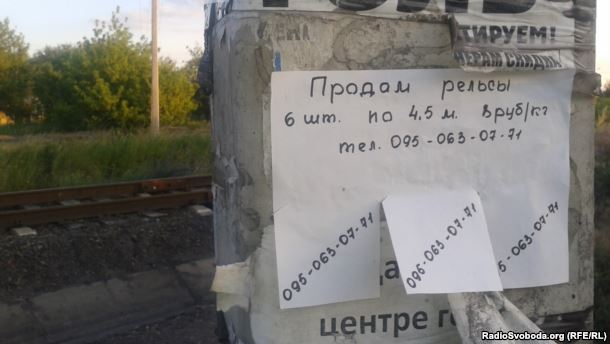 ТИРУЕМ!
Продам рельсы
6 шт. по 4,5 м. 8руб/кг
тел. 095-063-07-71
095-063-07-71
095-063-07-71
5-063-07-71
центре го
RadioSvoboda.org (RFE/RL)